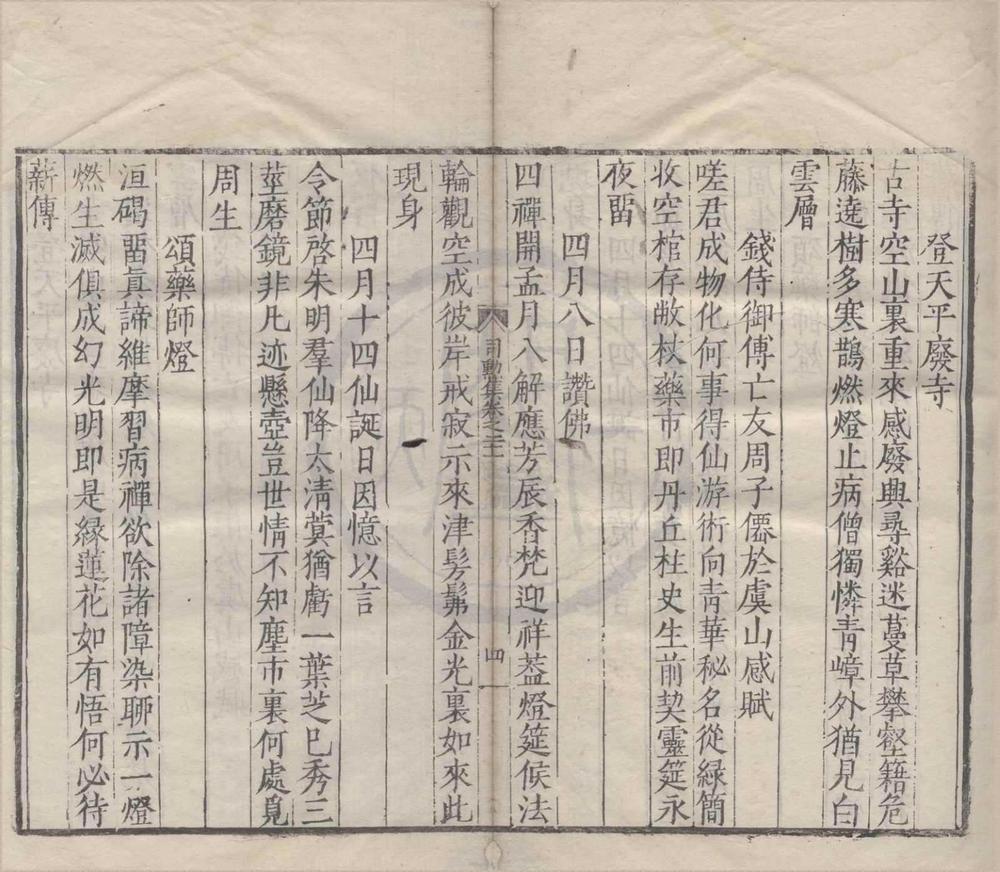 登天平廢寺
古寺空山裏重來感廢興尋谿迷蔓草攀壑籍危
藤遶樹多寒鵲燃燈止病僧獨憐青嶂外猶見白
雲層
錢侍御傅亡友周子僊於虞山感賦
嗟君成物化何事得仙游術向青華秘名從綠簡
收空棺存敝杖藥市即丹丘柱史生前契靈筵永
夜畱
四月八日讚佛
四禪開孟月八解應芳辰香梵迎祥葢燈筵候法
司勳集卷之二
四
輪觀空成彼岸戒寂示來津髣髴金光裏如來此
現身
四月十四仙誕日因憶以言
令節啓朱明羣仙降太清蓂猶虧一葉芝已秀三
莖磨鏡非凡迹懸壺豈世情不知塵市裏何處覓
周生
頌藥師燈
洹碣畱眞諦維摩習病禪欲除諸障染聊示一燈
燃生滅俱成幻光明即是緣蓮花如有悟何必待
薪傳